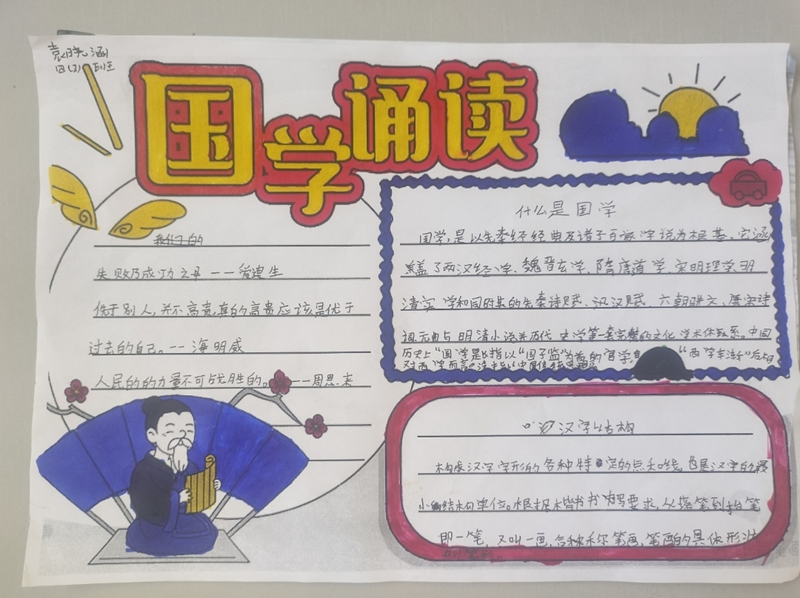 袁晓涵
四(3)班
国学诵读
失败乃成功之母——爱迪生
优于别人,并不高贵,真的高贵应该是优于
过去的自己。——海明威
人民的的力量不可战胜的。——周恩来
什么是国学
国学,是以先秦经经典及诸子百家学说为根基、它涵
盖了两汉经学、魏晋玄学、隋唐道学、宋明理学、明
清实学和同时期的先秦诗赋、汉赋、六朝骈文、唐宋诗
词元曲与明清小说并历代史学等一套完整的文化、学术体系。中国
历史上"国学是指以"国子监"为首的官学 "西学东渐"后相
对西学而言
汉字结构
构成汉字字形的各种特定的点和线,是汉字的最
小的结构单位。根据楷书书写要求,从落笔到抬笔
即一笔,又叫一画,各种称笔画,笔画的具体形状